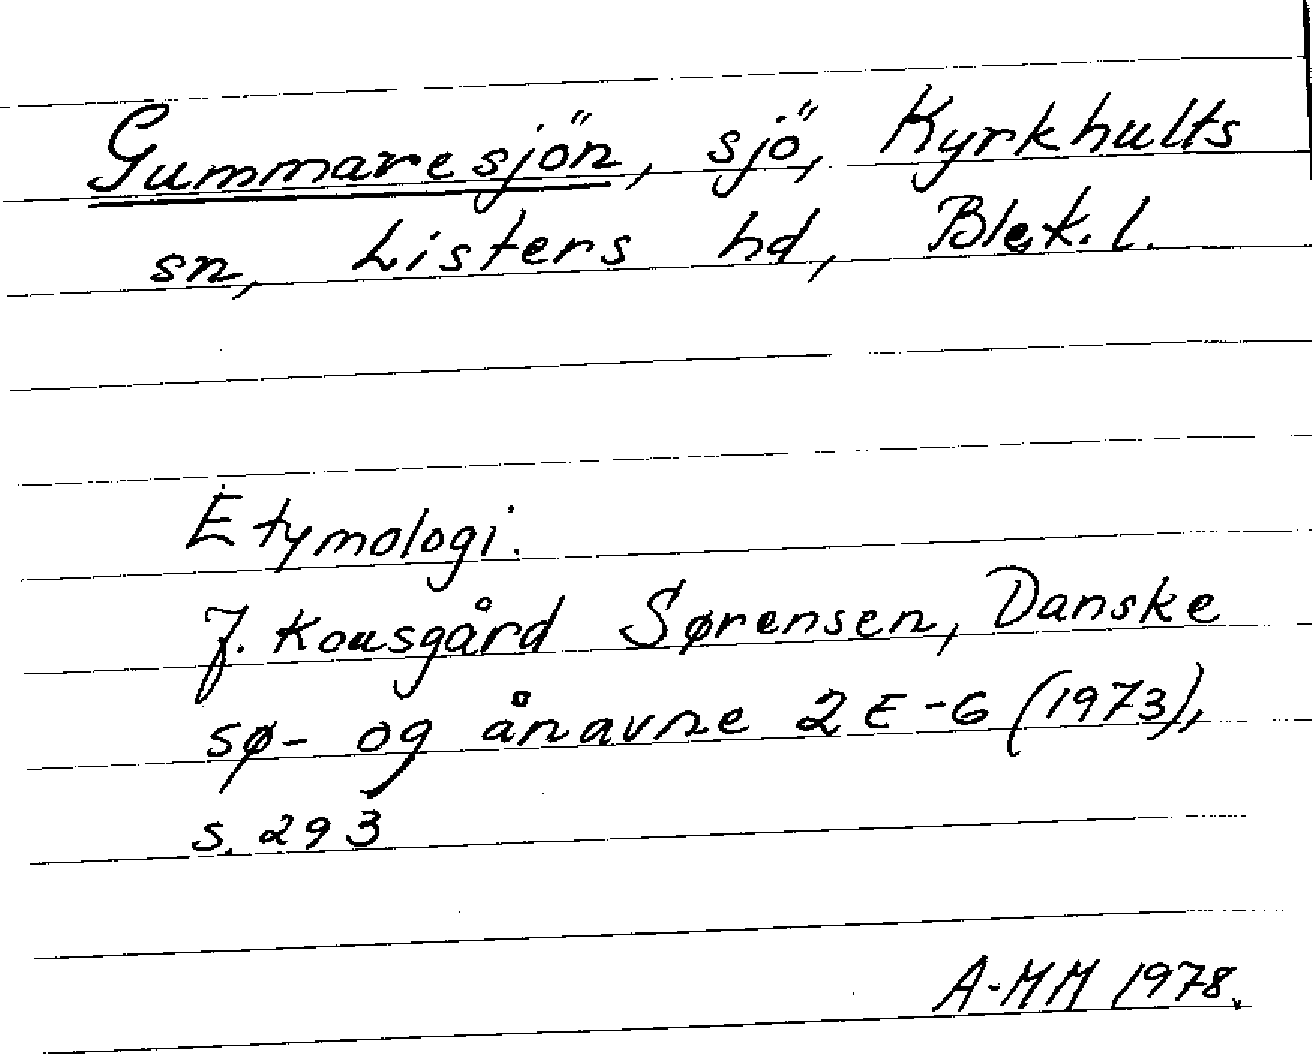 Gummaresjön, sjö, Kyrkhults
sn, Listers hd, Blek. l.
Etymologi.
J. Kousgård Sørensen, Danske
sø- og ånavne 2 E-G (1973),
s. 293
A-MM 1978.